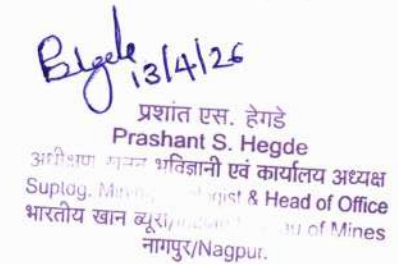 13/4/26
प्रशांत एस. हेगडे
Prashant S. Hegde
भूविज्ञानी एवं कार्यालय अध्यक्ष
Suptdg. & Head of Office
भारतीय खान ब्यूरो of Mines
नागपुर/Nagpur.